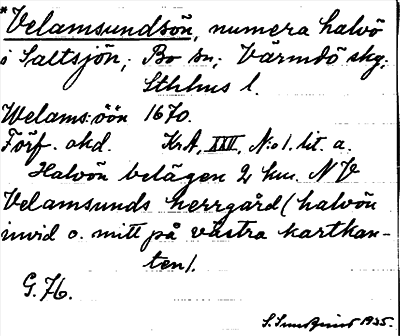 *Velamsundsön, numera halvö
i Saltsjön; Bo sn; Värmdö skg;
Sthlms l.
Welams:öön 1670.
Förf. okd. KrA, XXVI, N:o 1. lit. a.
Halvön belägen 2 km. NV
Velamsunds herrgård (halvön
invid o. mitt på västra kartkan-
ten).
G.76.
1935.